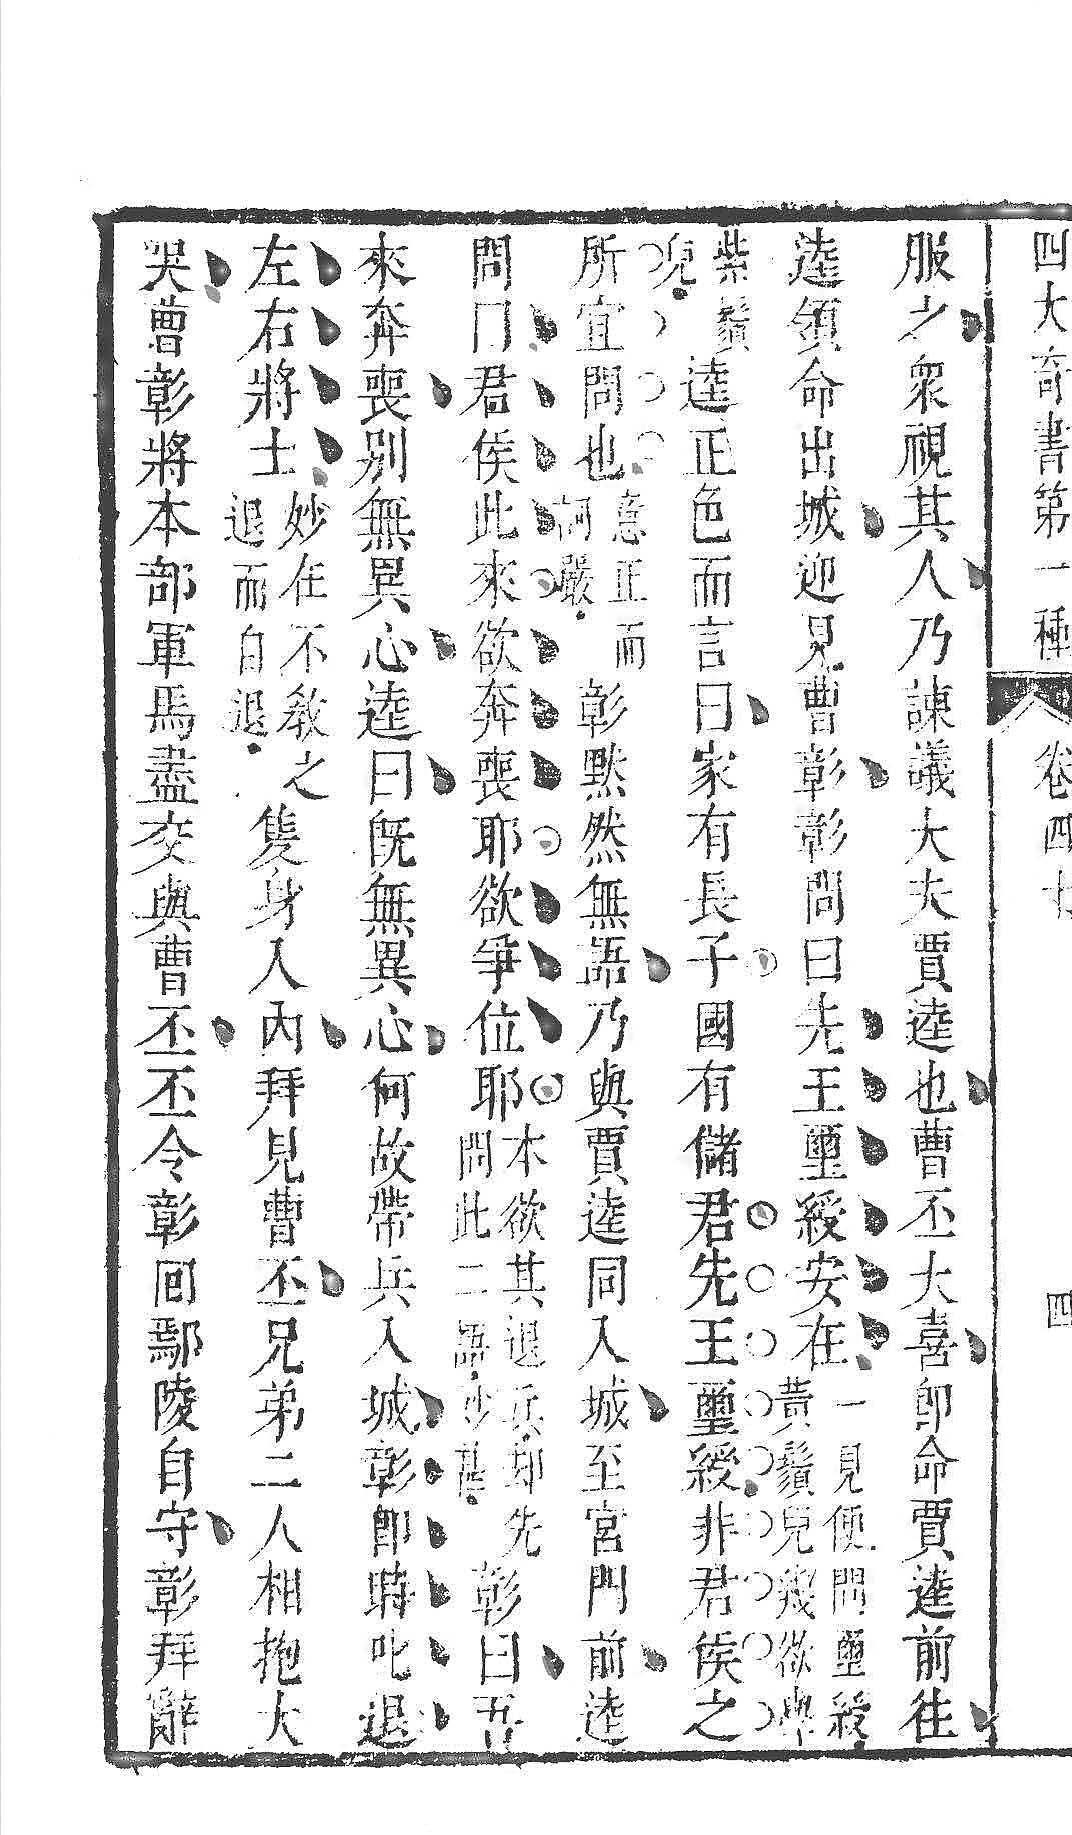 四大奇書第一種 卷四十 四
服之衆視其人乃諫議大夫賈逵也曹丕大喜即命賈逵前往
逵領命出城迎見曹彰彰問曰先王璽綬安在一見便問璽綬黃鬚兒幾欲與
紫鬚兒逵正色而言曰家有長子國有儲君先王璽綬非君侯之
所宜問也意正而詞嚴彰默然無語乃與賈逵同入城至宮門前逵
問曰君侯此來欲奔喪耶欲爭位耶本欲其退兵却先問此二語妙甚彰曰吾
來奔喪別無異心逵曰旣無異心何故帶兵入城彰即時叱退
左右將士妙在不敎之退而自退隻身入內拜見曹丕兄弟二人相抱大
哭曹彰將本部軍馬盡交與曹丕丕令彰回鄢陵自守彰拜辭